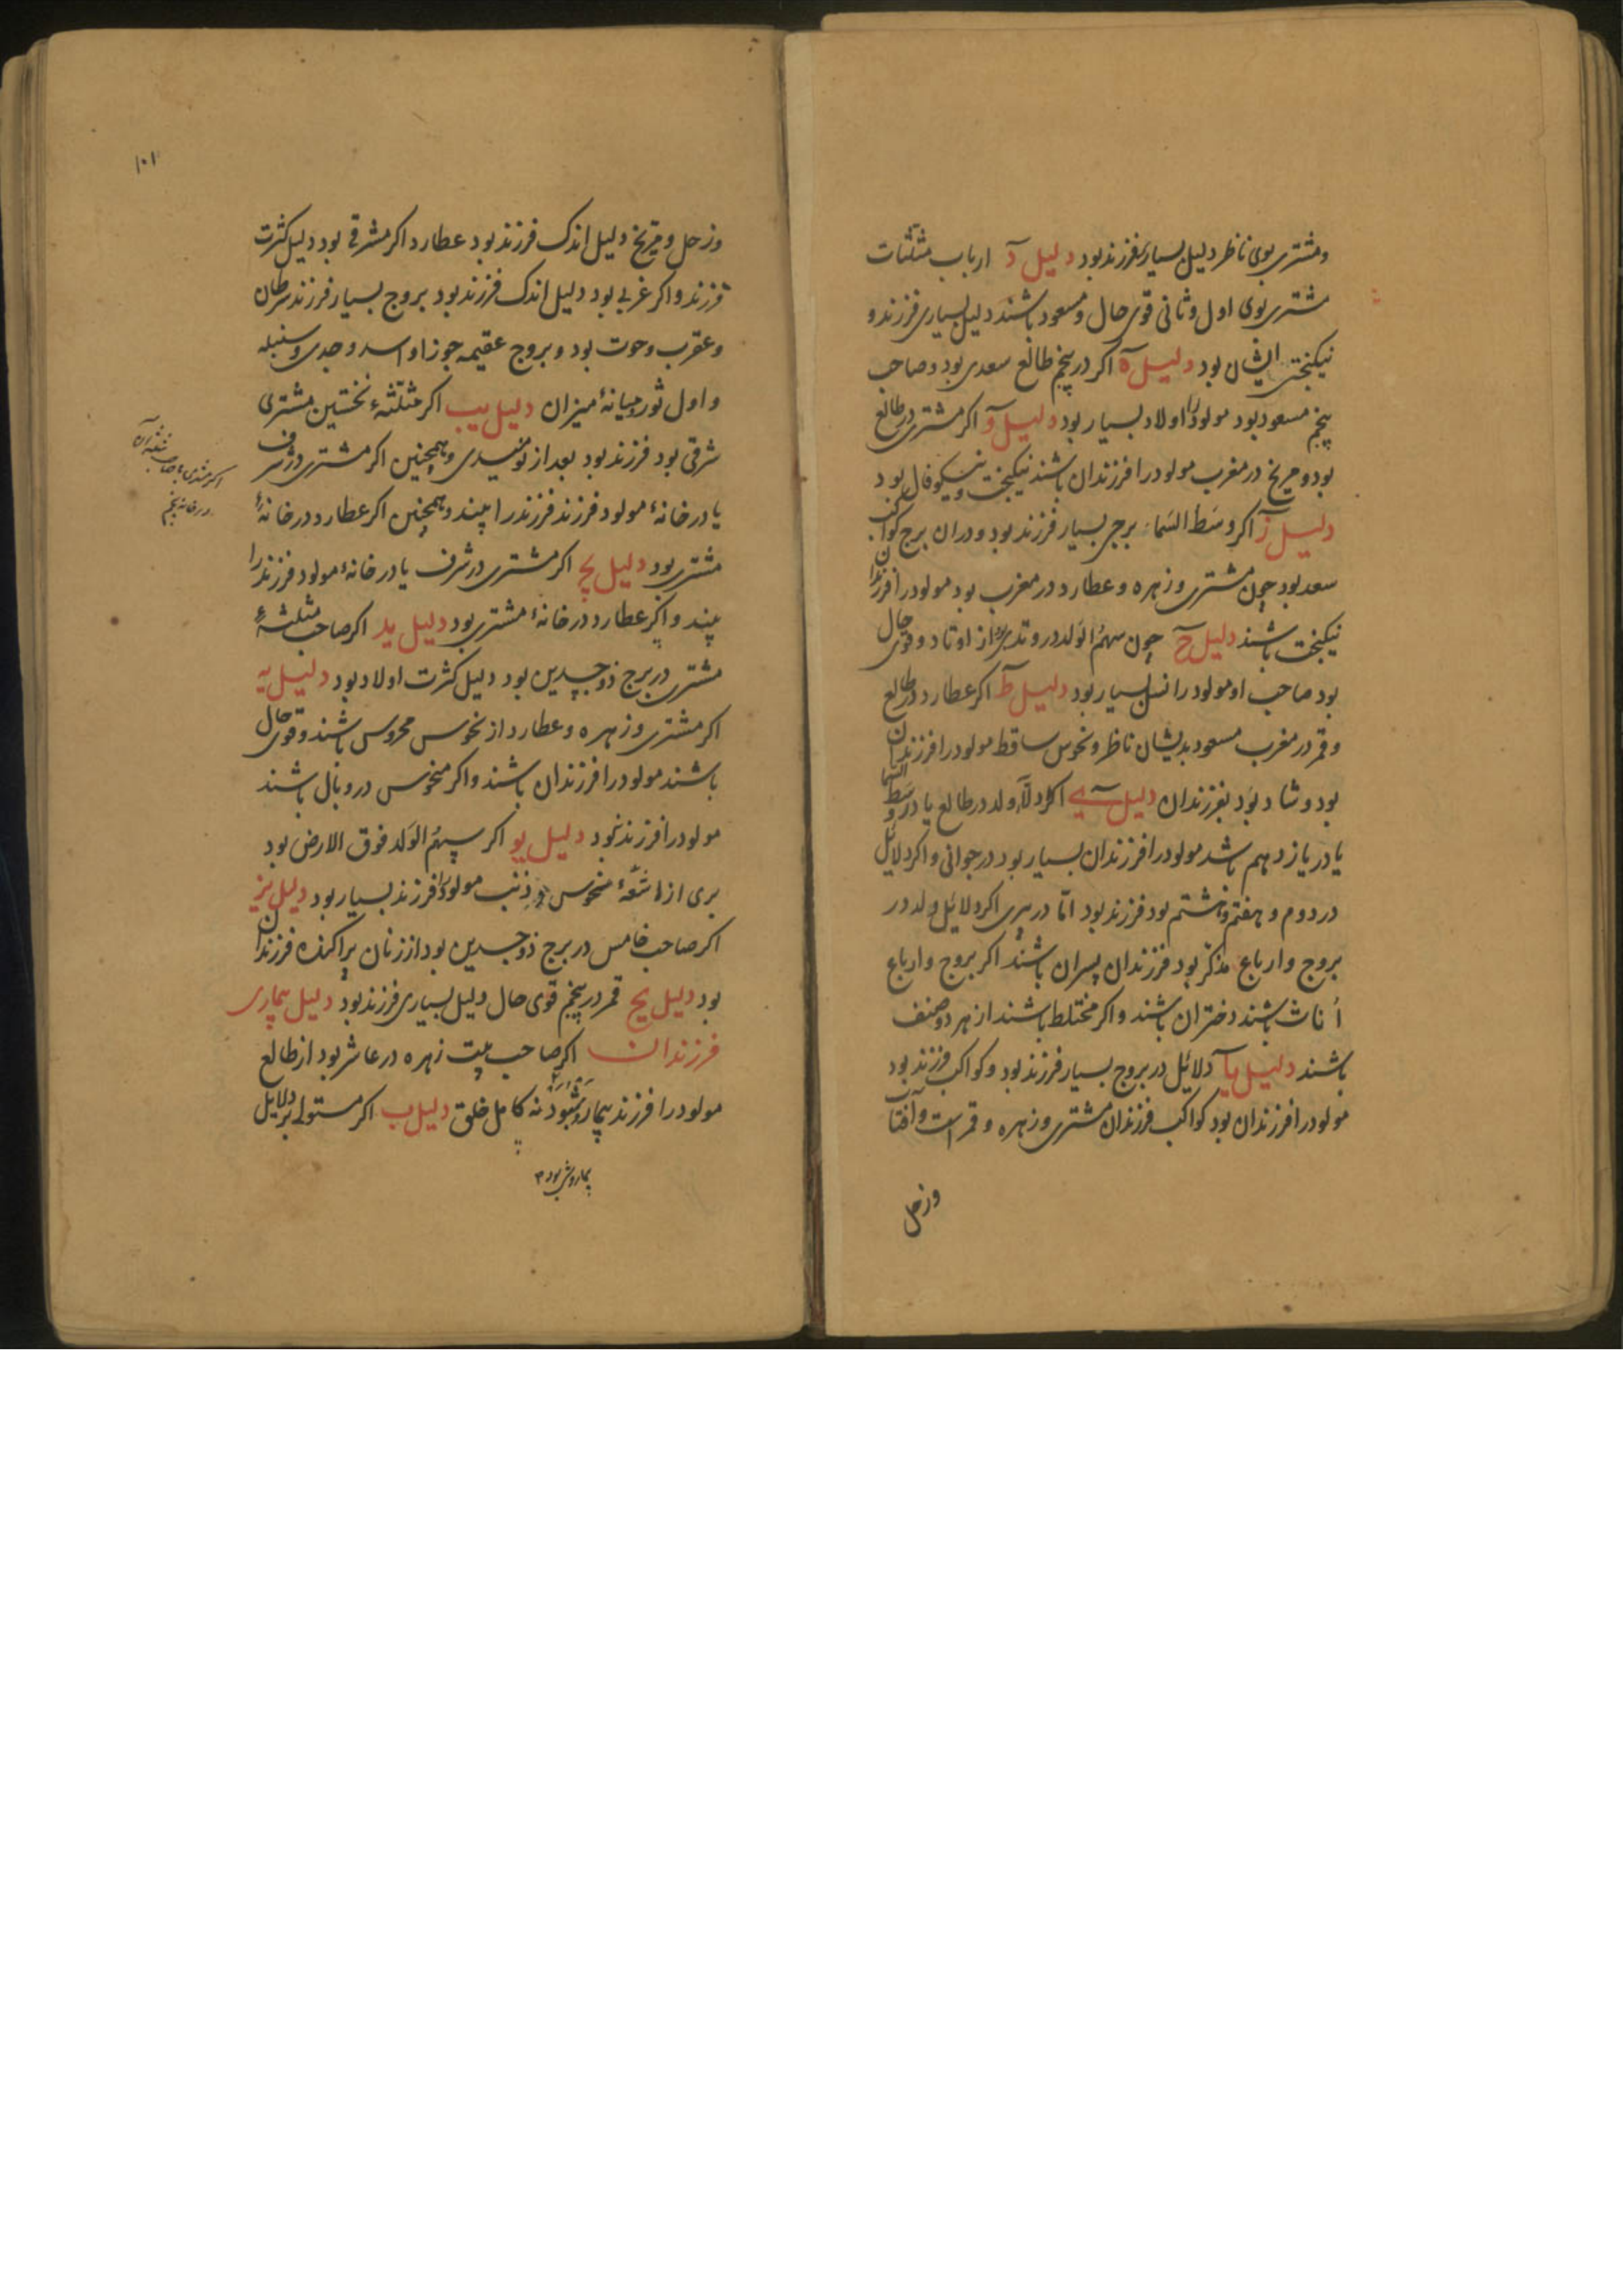 و مشتری بوی ناظر دلیل بسیار فرزند بود دلیل د ارباب مثلثات
مشتری بوی اول و ثانی قوی حال و مسعود باشند دلیل بسیاری فرزند و
نیکبختی ایشان بود دلیل ه اکر در پنجم طالع سعدی بود و صاحب
پنجم مسعود بود مولود را اولاد بسیار بود دلیل و اکر مشتری در طالع
بود و مریخ در مغرب مولود را فرزندان باشند نیکبخت و نیکو فال بود
دلیل ز اکر وسط السماء برجی بسیار فرزند بود و دران برج کواکب
سعد بود چون مشتری و زهره و عطارد در مغرب بود مولود را فرزندان
نیکبخت باشند دلیل ح چون سهم الولد در وتدی از اوتاد و قوی حال
بود صاحب او مولود را نسل بسیار بود دلیل ط اکر عطارد در طالع
و قمر در مغرب مسعود بدیشان ناظر و نحوس ساقط مولود را فرزندان
بود و شاد بود بفرزندان دلیل ی اکر دلایل ولد در طالع یا در وسط السما
یا در یازدهم باشد مولود را فرزندان بسیار بود در جوانی و اکر دلایل
در دوم و هفتم و هشتم بود فرزند بود امّا در پیری اکر دلایل ولد در
بروج و ارباع مذکّر بود فرزندان پسران باشند اکر بروج و ارباع
أناث باشند دختران باشند و اکر مختلط باشند از هر دو صنف
باشند دلیل یا دلایل در بروج بسیار فرزند بود و کواکب فرزند بود
مولود را فرزندان بود کواکب فرزندان مشتری و زهره و قمر است و آفتاب
و زحل
۱۰۱
و زحل و مریخ دلیل اندک فرزند بود عطارد اکر مشرقی بود دلیل کثرت
فرزند و اکر غربی بود دلیل اندک فرزند بود بروج بسیار فرزند سرطان
و عقرب و حوت بود و بروج عقیمه جوزا و اسد و جدی و سنبله
و اول ثور و میانهٔ میزان دلیل یب اکر مثلّثهٔ نخستین مشتری
شرقی بود فرزند بود بعد از نومیدی و همچنین اکر مشتری در شرف
یا در خانهٔ مولود فرزند فرزند را بیند و همچنین اکر عطارد در خانهٔ
مشتری بود دلیل یج اکر مشتری در شرف یا در خانهٔ مولود فرزند را
بیند و اکر عطارد در خانهٔ مشتری بود دلیل ید اکر صاحب مثلثهٔ
مشتری در برج ذوجسدین بود دلیل کثرت اولاد بود دلیل یه
اکر مشتری و زهره و عطارد از نحوس محروس باشند و قوی حال
باشند مولود را فرزندان باشند و اکر منحوس در وبال باشند
مولود را فرزند نبود دلیل یو اکر سهم الولد فوق الارض بود
بری از اشعّهٔ منحوس و ذنب مولود را فرزند بسیار بود دلیل یز
اکر صاحب خامس در برج ذوجسدین بود از زنان پراکنده فرزندان
بود دلیل یح قمر در پنجم قوی حال دلیل بسیاری فرزند بود دلیل بیماری
فرزندان اکر صاحب بیت زهره در عاشر بود از طالع
مولود را فرزند بیمار بود نه کامل خلق دلیل ب اکر مستولی بر دلایل
اکر مشتری با صاحب مثلثه آن
در خانه پنجم